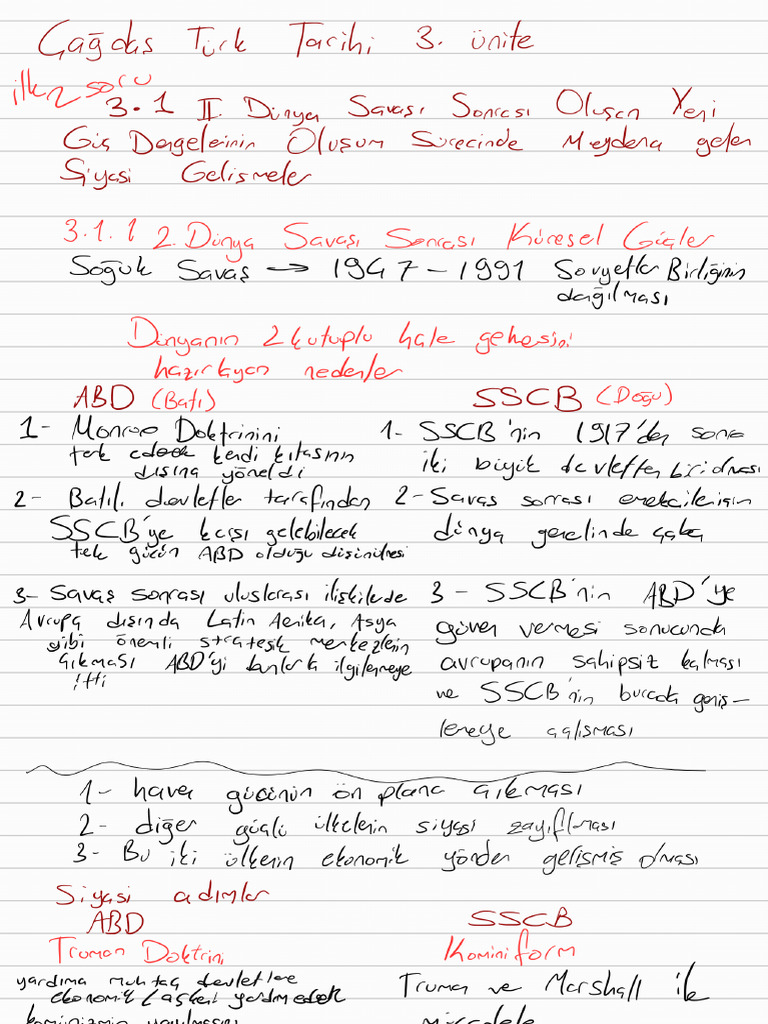 Çağdaş Türk Tarihi 3. ünite
ilk 2 soru
3.1 II. Dünya Savaşı Sonrası Oluşan Yeni
Güç Dengelerinin Oluşum Sürecinde Meydana gelen
Siyasi Gelişmeler
3.1.1 2. Dünya Savaşı Sonrası Küresel Güçler
Soğuk Savaş → 1947-1991 Sovyetler Birliğinin
dağılması
Dünyanın 2 kutuplu hale gelmesini
hazırlayan nedenler
ABD (Batı)
1- Monroe Doktrinini
terk ederek kendi kıtasının
dışına yöneldi
2- Batılı devletler tarafından
SSCB'ye karşı gelebilecek
tek gücün ABD olduğu düşünülmesi
3- Savaş sonrası uluslarası ilişkilerde
Avrupa dışında Latin Amerika, Asya
gibi önemli stratejik merkezlerin
çıkması ABD'yi bunlarla ilgilenmeye
itti
SSCB (Doğu)
1- SSCB'nin 1917'den sonra
iki büyük devletten biri olması
2- Savaş sonrası
dünya genelinde çaba
3- SSCB'nin ABD'ye
güven vermesi sonucunda
avrupanın sahipsiz kalması
ve SSCB'nin burada geniş-
lemeye çalışması
1- hava gücünün ön plana çıkması
2- diğer güçlü ülkelerin siyasi zayıflması
3- Bu iki ülkenin ekonomik yönden gelişmiş olması
Siyasi adımlar
ABD
Truman Doktrini
yardıma muhtaç devletlere
ekonomik/askeri yardım ederek
kominizmin yayılmasını
SSCB
Kominiform
Truman ve Marshall ile
mücadele